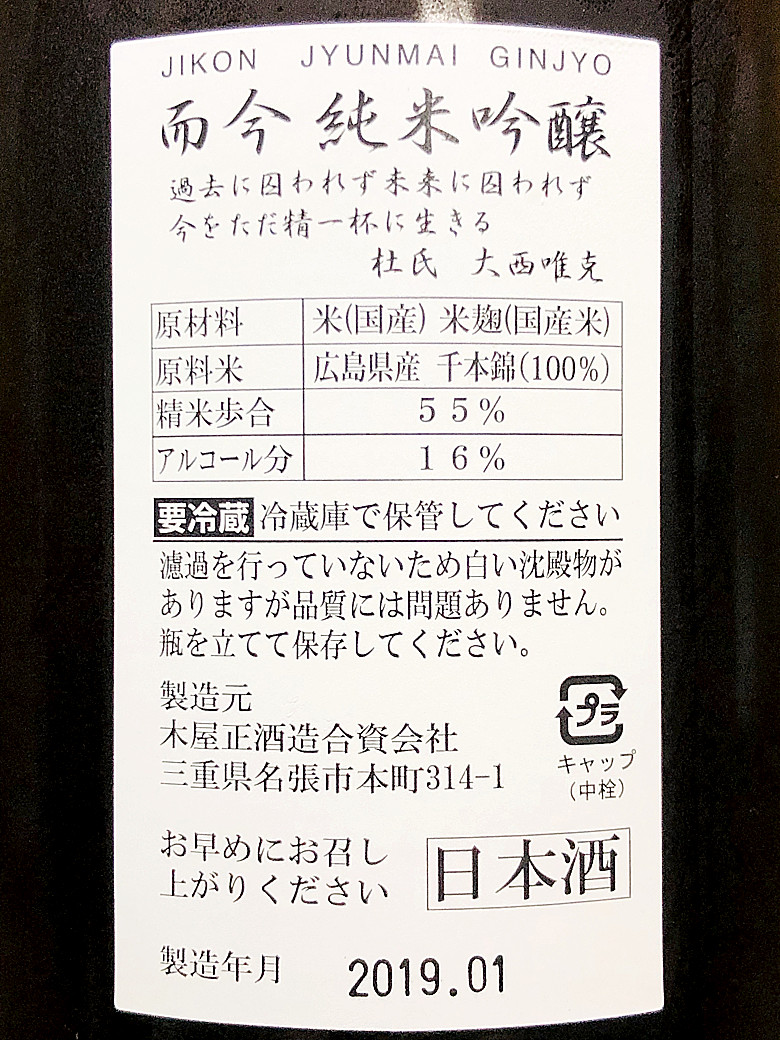 JIKON JYUNMAI GINJYO
而今 純米吟醸
過去に囚われず未来に囚われず
今をただ精一杯に生きる
杜氏 大西唯克
原材料 米(国産) 米麹(国産米)
原料米 広島県産 千本錦(100%)
精米歩合 55%
アルコール分 16%
要冷蔵 冷蔵庫で保管してください
濾過を行っていないため白い沈殿物が
ありますが品質には問題ありません。
瓶を立てて保存してください。
製造元
木屋正酒造合資会社
三重県名張市本町314-1
プラ
キャップ
(中栓)
お早めにお召し
上がりください
日本酒
製造年月 2019.01